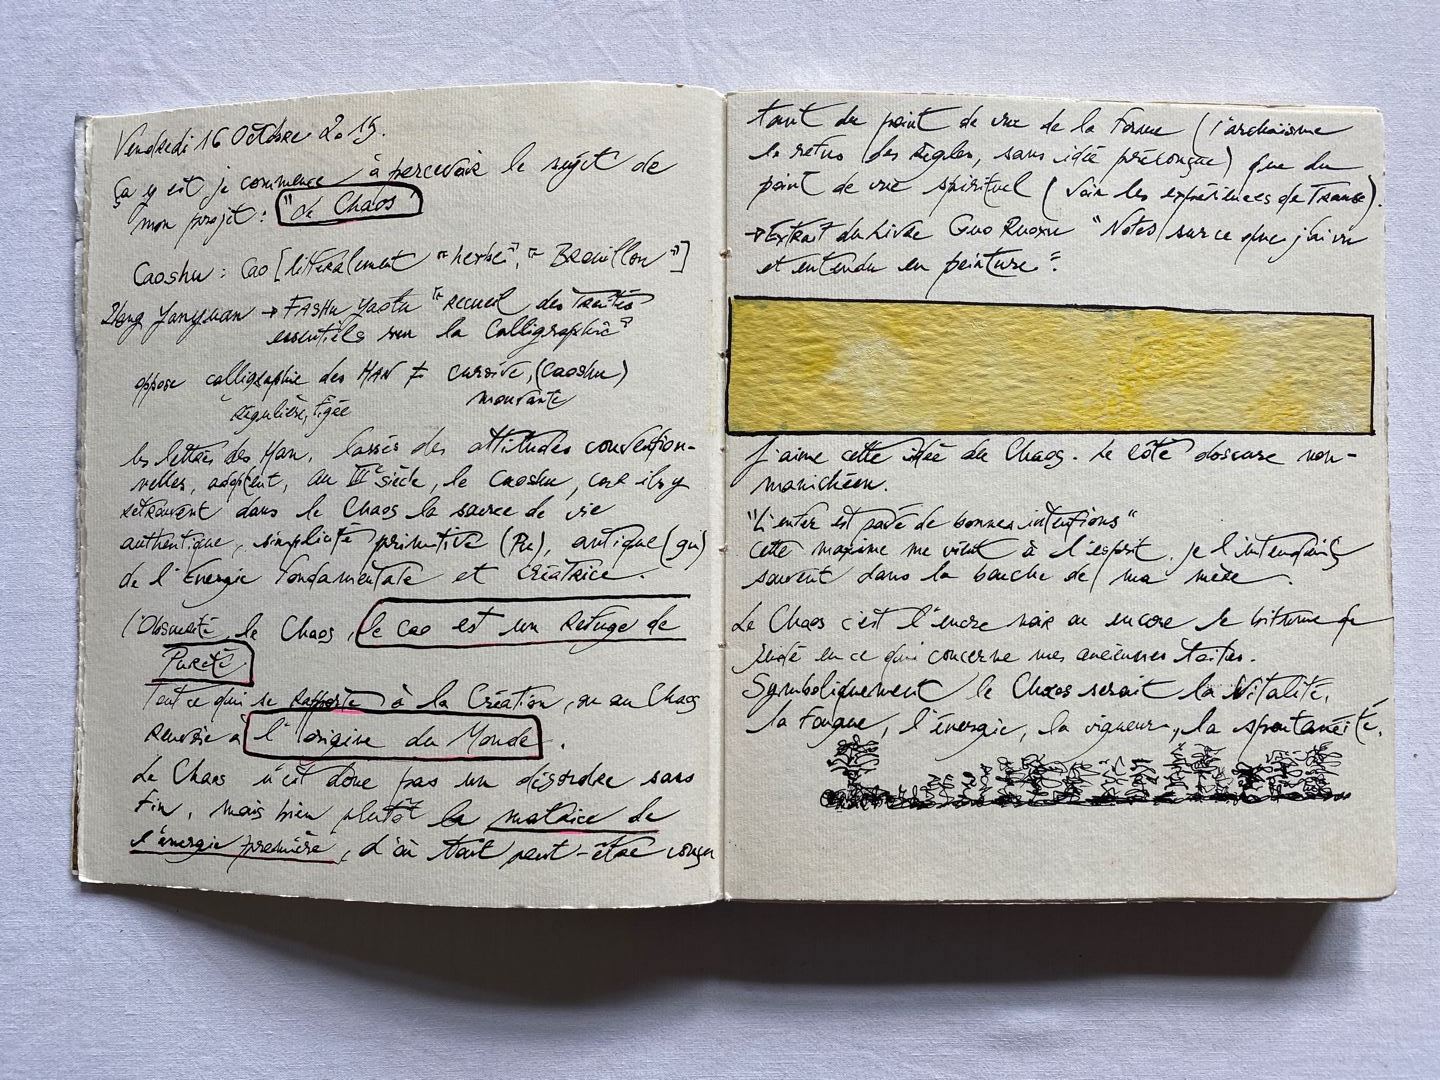 Vendredi 16 Octobre 2015.
ça y est je commence à percevoir le sujet de
mon projet : "le Chaos"
Caoshu : Cao [littéralement "herbe", "Brouillon"]
Zhang Yanyuan → Fashu Yaolu "Recueil des Traités
essentiels sur la Calligraphie"
oppose calligraphie des Han ≠ cursive, (caoshu)
Régulière, figée mouvante
les lettrés des Han, lassés des attitudes convention-
nelles, adoptent, au IIe siècle, le caoshu, car ils y
retrouvent dans le Chaos la source de vie
authentique, simplicité primitive (Pu), antique (gu)
de l'Energie fondamentale et créatrice.
l'Obscurité, le Chaos, le cao est un Refuge de
Pureté
Tout ce qui se rapporte à la Création, ou au Chaos
Renvoie à l'origine du Monde.
Le Chaos n'est donc pas un désordre sans
fin, mais bien plutôt la matrice de
l'énergie première, d'où tout peut-être conçu
tant du point de vue de la Forme (l'archaïsme
le refus des Règles, sans idée préconçue) que du
point de vue spirituel (voir les expériences de Transe).
→ Extrait du Livre Guo Ruoxu "Notes sur ce que j'ai vu
et entendu en peinture".
J'aime cette idée du Chaos. Le côté obscure non-
manichéen.
"L'enfer est pavé de bonnes intentions"
cette maxime me vient à l'esprit, je l'entendais
souvent dans la bouche de ma mère.
Le Chaos c'est l'encre noir ou encore le bitume de
judée en ce qui concerne mes anciennes toiles.
Symboliquement le Chaos serait la Vitalité,
la Fougue, l'énergie, la vigueur, la spontanéité.